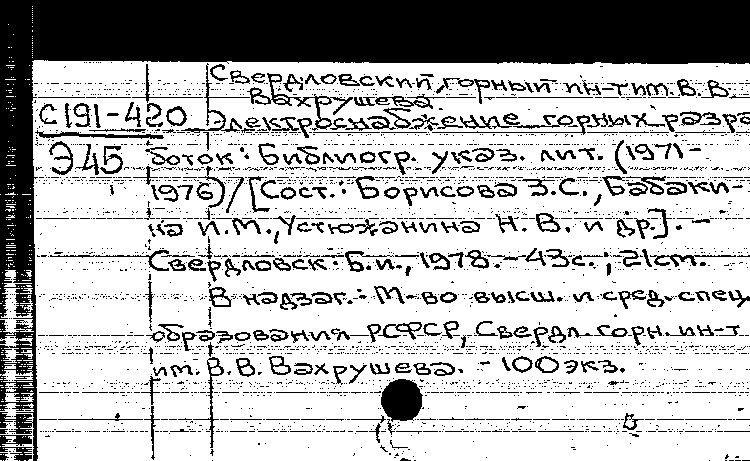 Свердловский горный ин-т им. В. В.
Вахрушева.
С191-420 Электроснабжение горных разра-
Э45 боток: Библиогр. указ. лит. (1971-
1976)/[Сост.: Борисова З.С., Бабаки-
на И.М., Устюжанина Н. В. и др.]. –
Свердловск: Б.и., 1978. – 43с.; 21см.
В надзаг.: М-во высш. и сред. спец.
образования РСФСР, Свердл. горн. ин-т
им. В. В. Вахрушева. – 100экз.